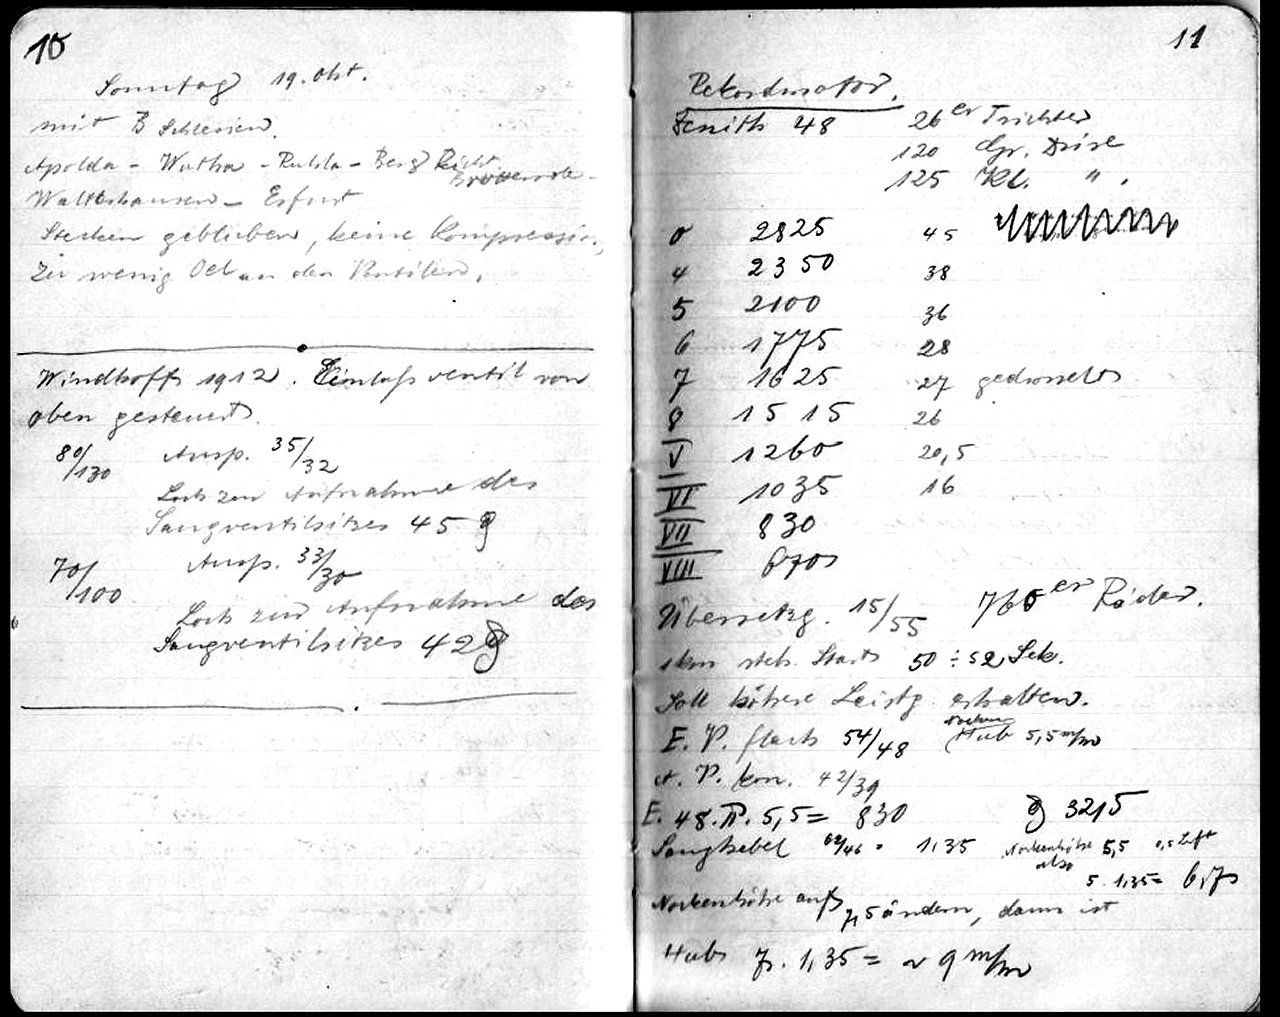 10
Sonntag 19. Okt.
mit B Schlesien.
Apolda - Wutha - Ruhla - Berg Richt.
Brotterode -
Waltershausen - Erfurt
Stecken geblieben, keine Compression,
zu wenig Oel an den Ventilen.
Windhoff 1912. Einlassventil von
oben gesteuert.
80/130 Ausp. 35/32
Loch zur Aufnahme des
Saugventilsitzes 45 ϕ
70/100 Ausp. 33/30
Loch zur Aufnahme des
Saugventilsitzes 42 ϕ
11
Rekordmotor.
Zenith 48 26er Trichter
120 Gr. Düse
125 Kl. " .
0 2825 45
4 2350 38
5 2100 36
6 1775 28
7 1625 27 gedrosselt
8 1515 26
V 1260 20,5
VI 1035 16
VII 830
VIII 670
Übersetzg. 15/55 760er Räder.
1km steh. Start 50 ÷ 52 Sek.
Soll höhere Leistg erhalten.
E. V. flach 54/48 Nocken Hub 5,5 m/m
A. V. kon. 42/39
E. 48.π. 5,5 = 830 ϕ 32,5
Saughebel 62/46 = 1,35 Nockenhöhe 5,5 0,5 Luft
also
5 . 1,35 = 6,75
Nockenhöhe auf 7,5 ändern, dann ist
Hub 7. 1,35 = ~ 9 m/m